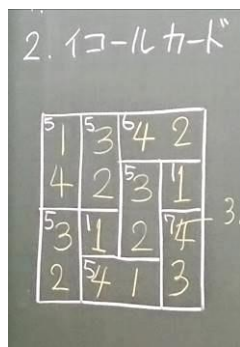 2. イコールカード
5 1 5 3 6 4 2
4 2 5 3 1 1
5 3 1 1 2 7 4 3.
2 5 4 1 3